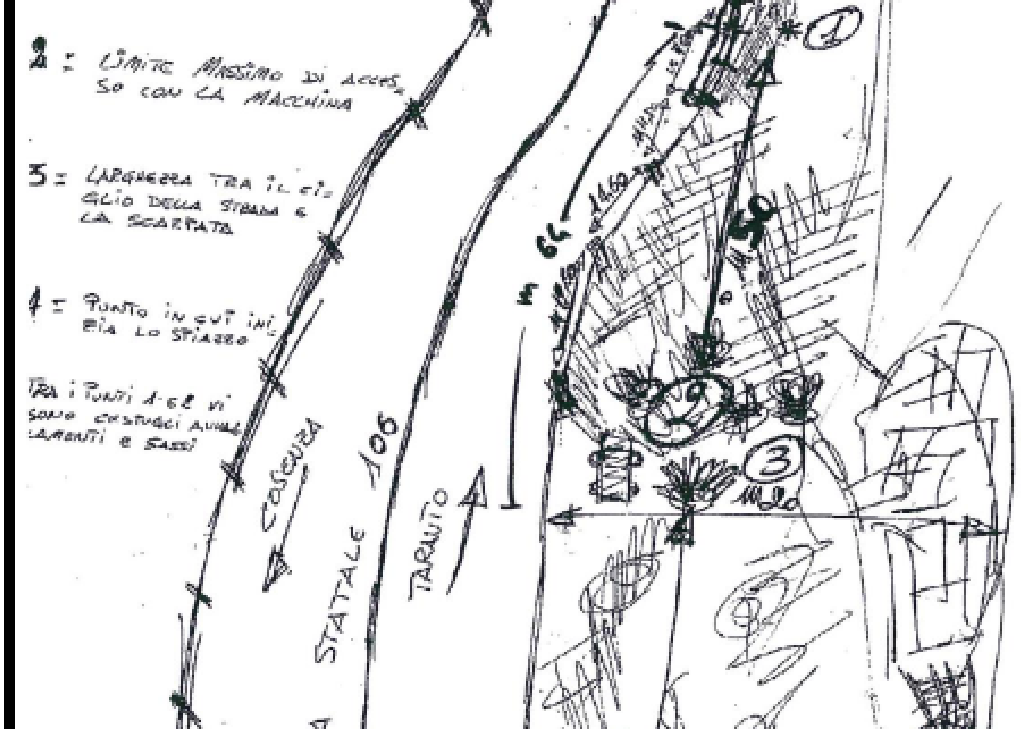 2 = LIMITE MASSIMO DI ACCES-
SO CON LA MACCHINA
3 = LARGHEZZA TRA IL CI-
GLIO DELLA STRADA E
LA SCARPATA
1 = PUNTO IN CUI INI-
ZIA LO SPIAZZO
TRA I PUNTI 1-E 2 VI
SONO CESPUGLI
E SASSI
COSENZA
STATALE 106
TARANTO
m 64
14.50
50
1
2
3
m 20